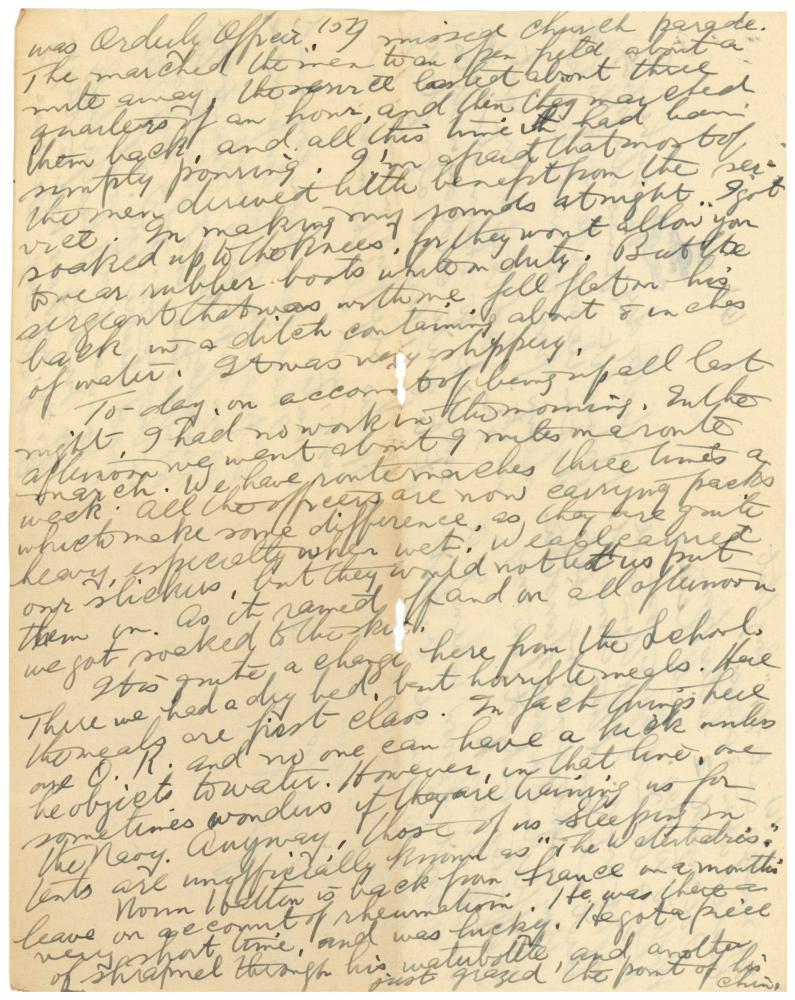 was Orderly Officer, so I missed church parade.
The marched the men to an open field about a
mile away, the service lasted about three
quarters of an hour, and then they marched
them back, and all this time it had been
simply pouring. I'm afraid that most of
the men derived little benefit from the ser-
vice. In making my rounds at night, I got
soaked up to the knees, for they wont allow you
to wear rubber boots while on duty. But the
sergeant that was with me, fell flat on his
back in a ditch containing about 8 inches
of water. It was very slippery.
To-day, on account of being up all last
night, I had no work in the morning. In the
afternoon we went about 9 miles on a route
march. We have route marches three times a
week. All the officers are now carrying packs
which make some difference, as they are quite
heavy, especially when wet. We all carried
our slickers, but they would not let us put
them on. As it rained off and on all afternoon
we got soaked to the skin.
It is quite a change here from the School.
There we had a dry bed, but horrible meals. Here
the meals are first class. In fact things here
are O.K. and no one can have a kick unless
he objects to water. However, in that line, one
sometimes wonders if they are training us for
the Navy. Anyway, those of us sleeping in
tents are unofficially known as "The Waterbabies."
Norm Walton is back from France on a month's
leave on account of rheumatism. He was there a
very short time, and was lucky. He got a piece
of shrapnel through his waterbottle, and another
just grazed the point of his
chin.